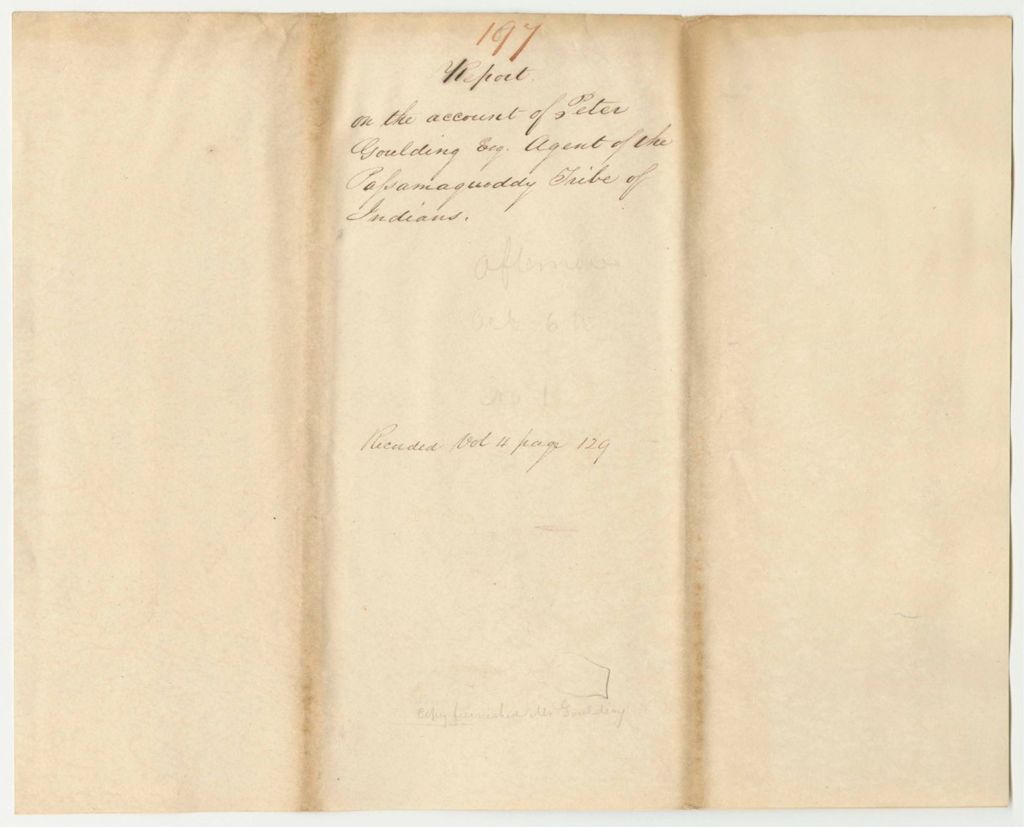 197
Report
on the account of Peter
Goulding Esq. Agent of the
Passamaquoddy Tribe of
Indians.
afternoon
No 1
Recorded Vol 4 page 129
Copy furnished Mr Goulding